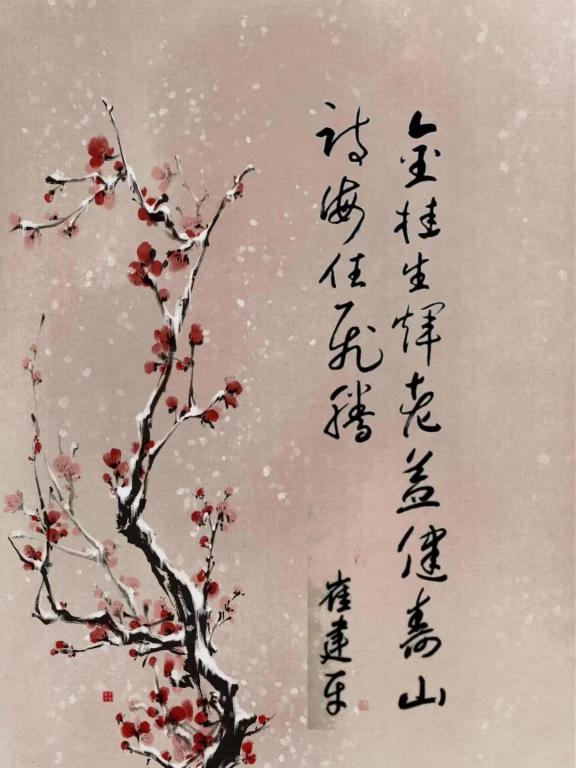 金桂生辉老益健寿山
诗海任飞腾
崔建平